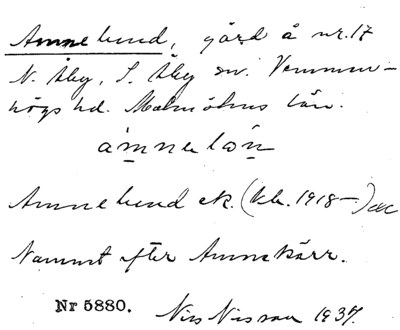 Amnelund, gård å nr. 17
N. Åby, S. Åby sn. Vemmen-
högs hd. Malmöhus län.
Amnelund ek. (kb. 1918–)
Namnet efter Amnekärr.
Nr 5880. Nils Nilsson 1937.